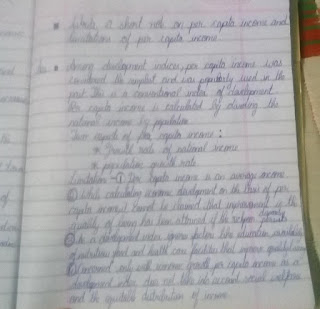 * Write a short note on per capita income and
limitations of per capita income.
Ans * Among development indices, per capita income was
considered the simplest and was popularly used in the
past. This is a conventional index of development.
Per capita income is calculated by dividing the
national income by population.
Two aspects of per capita income :
* Growth rate of national income
* population growth rate
Limitation - ① Per capita income is an average income
② While calculating economic development on the basis of per
capita income it cannot be claimed that improvement in the
quality of living has been attained if the
③ As a development index ignores factors like education, availability
of nutritious food and health care facilities that improve quality of living
④ Concerned only with economic growth per capita income as a
development index does not take into account social welfare
and the equitable distribution of income.